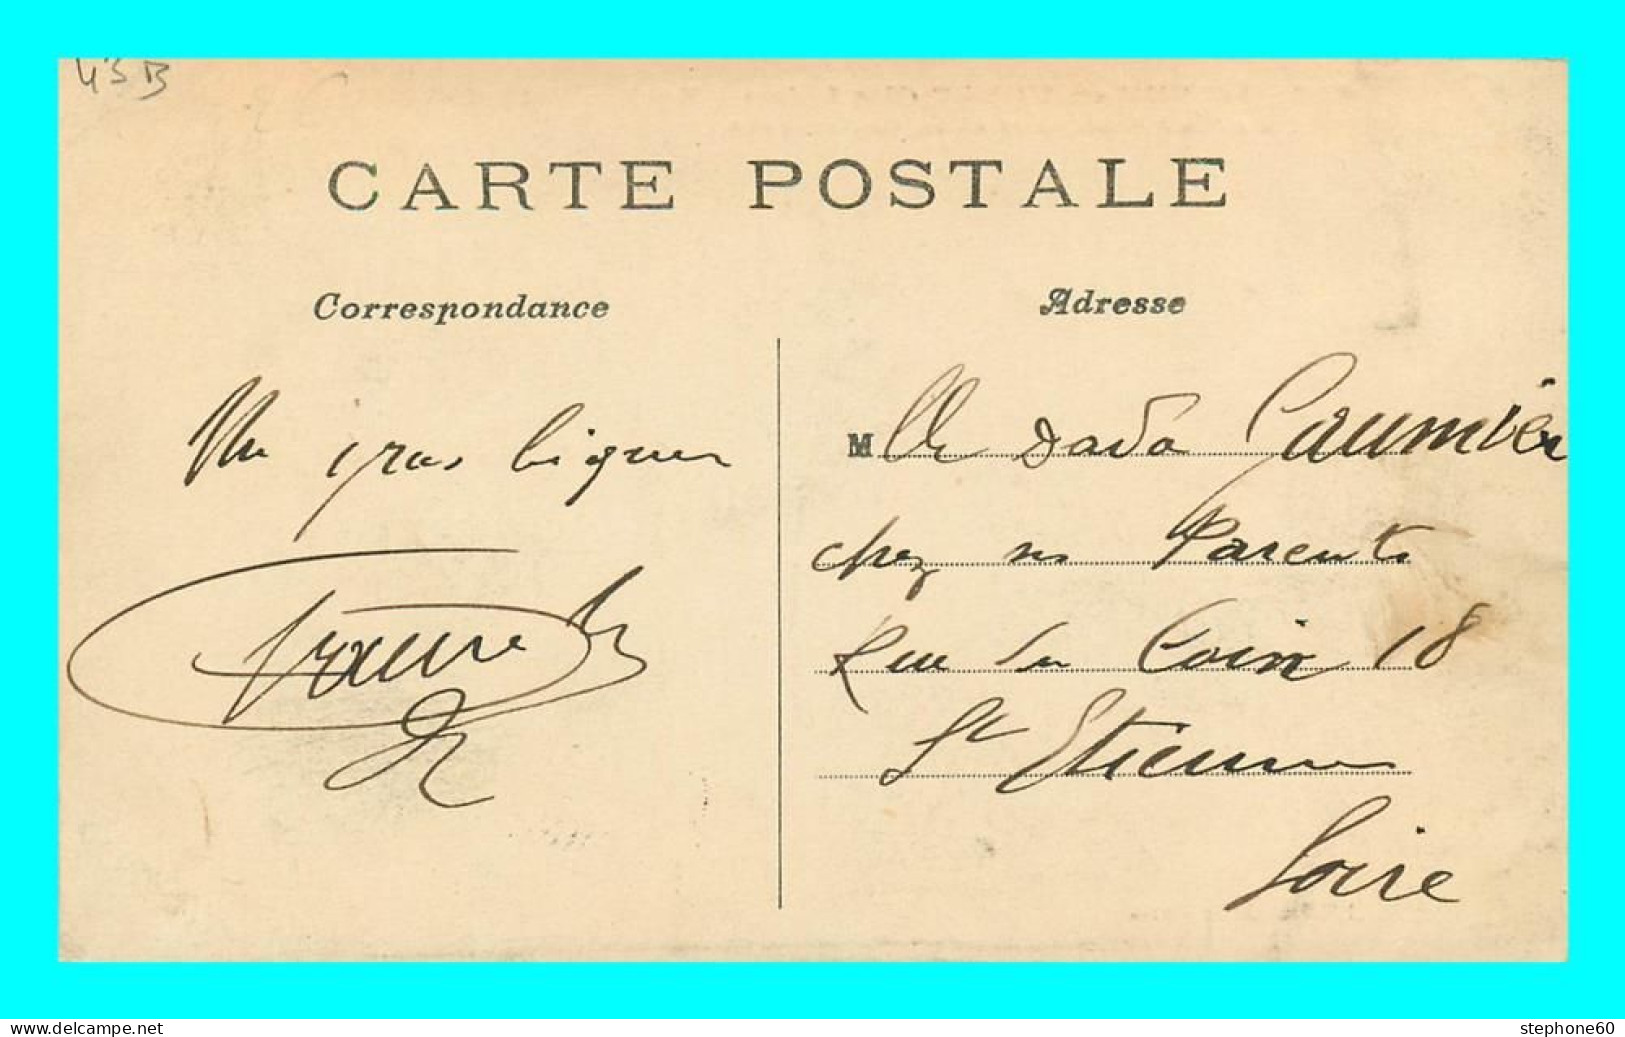 43B
CARTE POSTALE
Correspondance
Adresse
Un gros
M Dada Gaumier
chez ses Parents
Rue du Coin 18
St Etienne
Loire
www.delcampe.net
stephone60